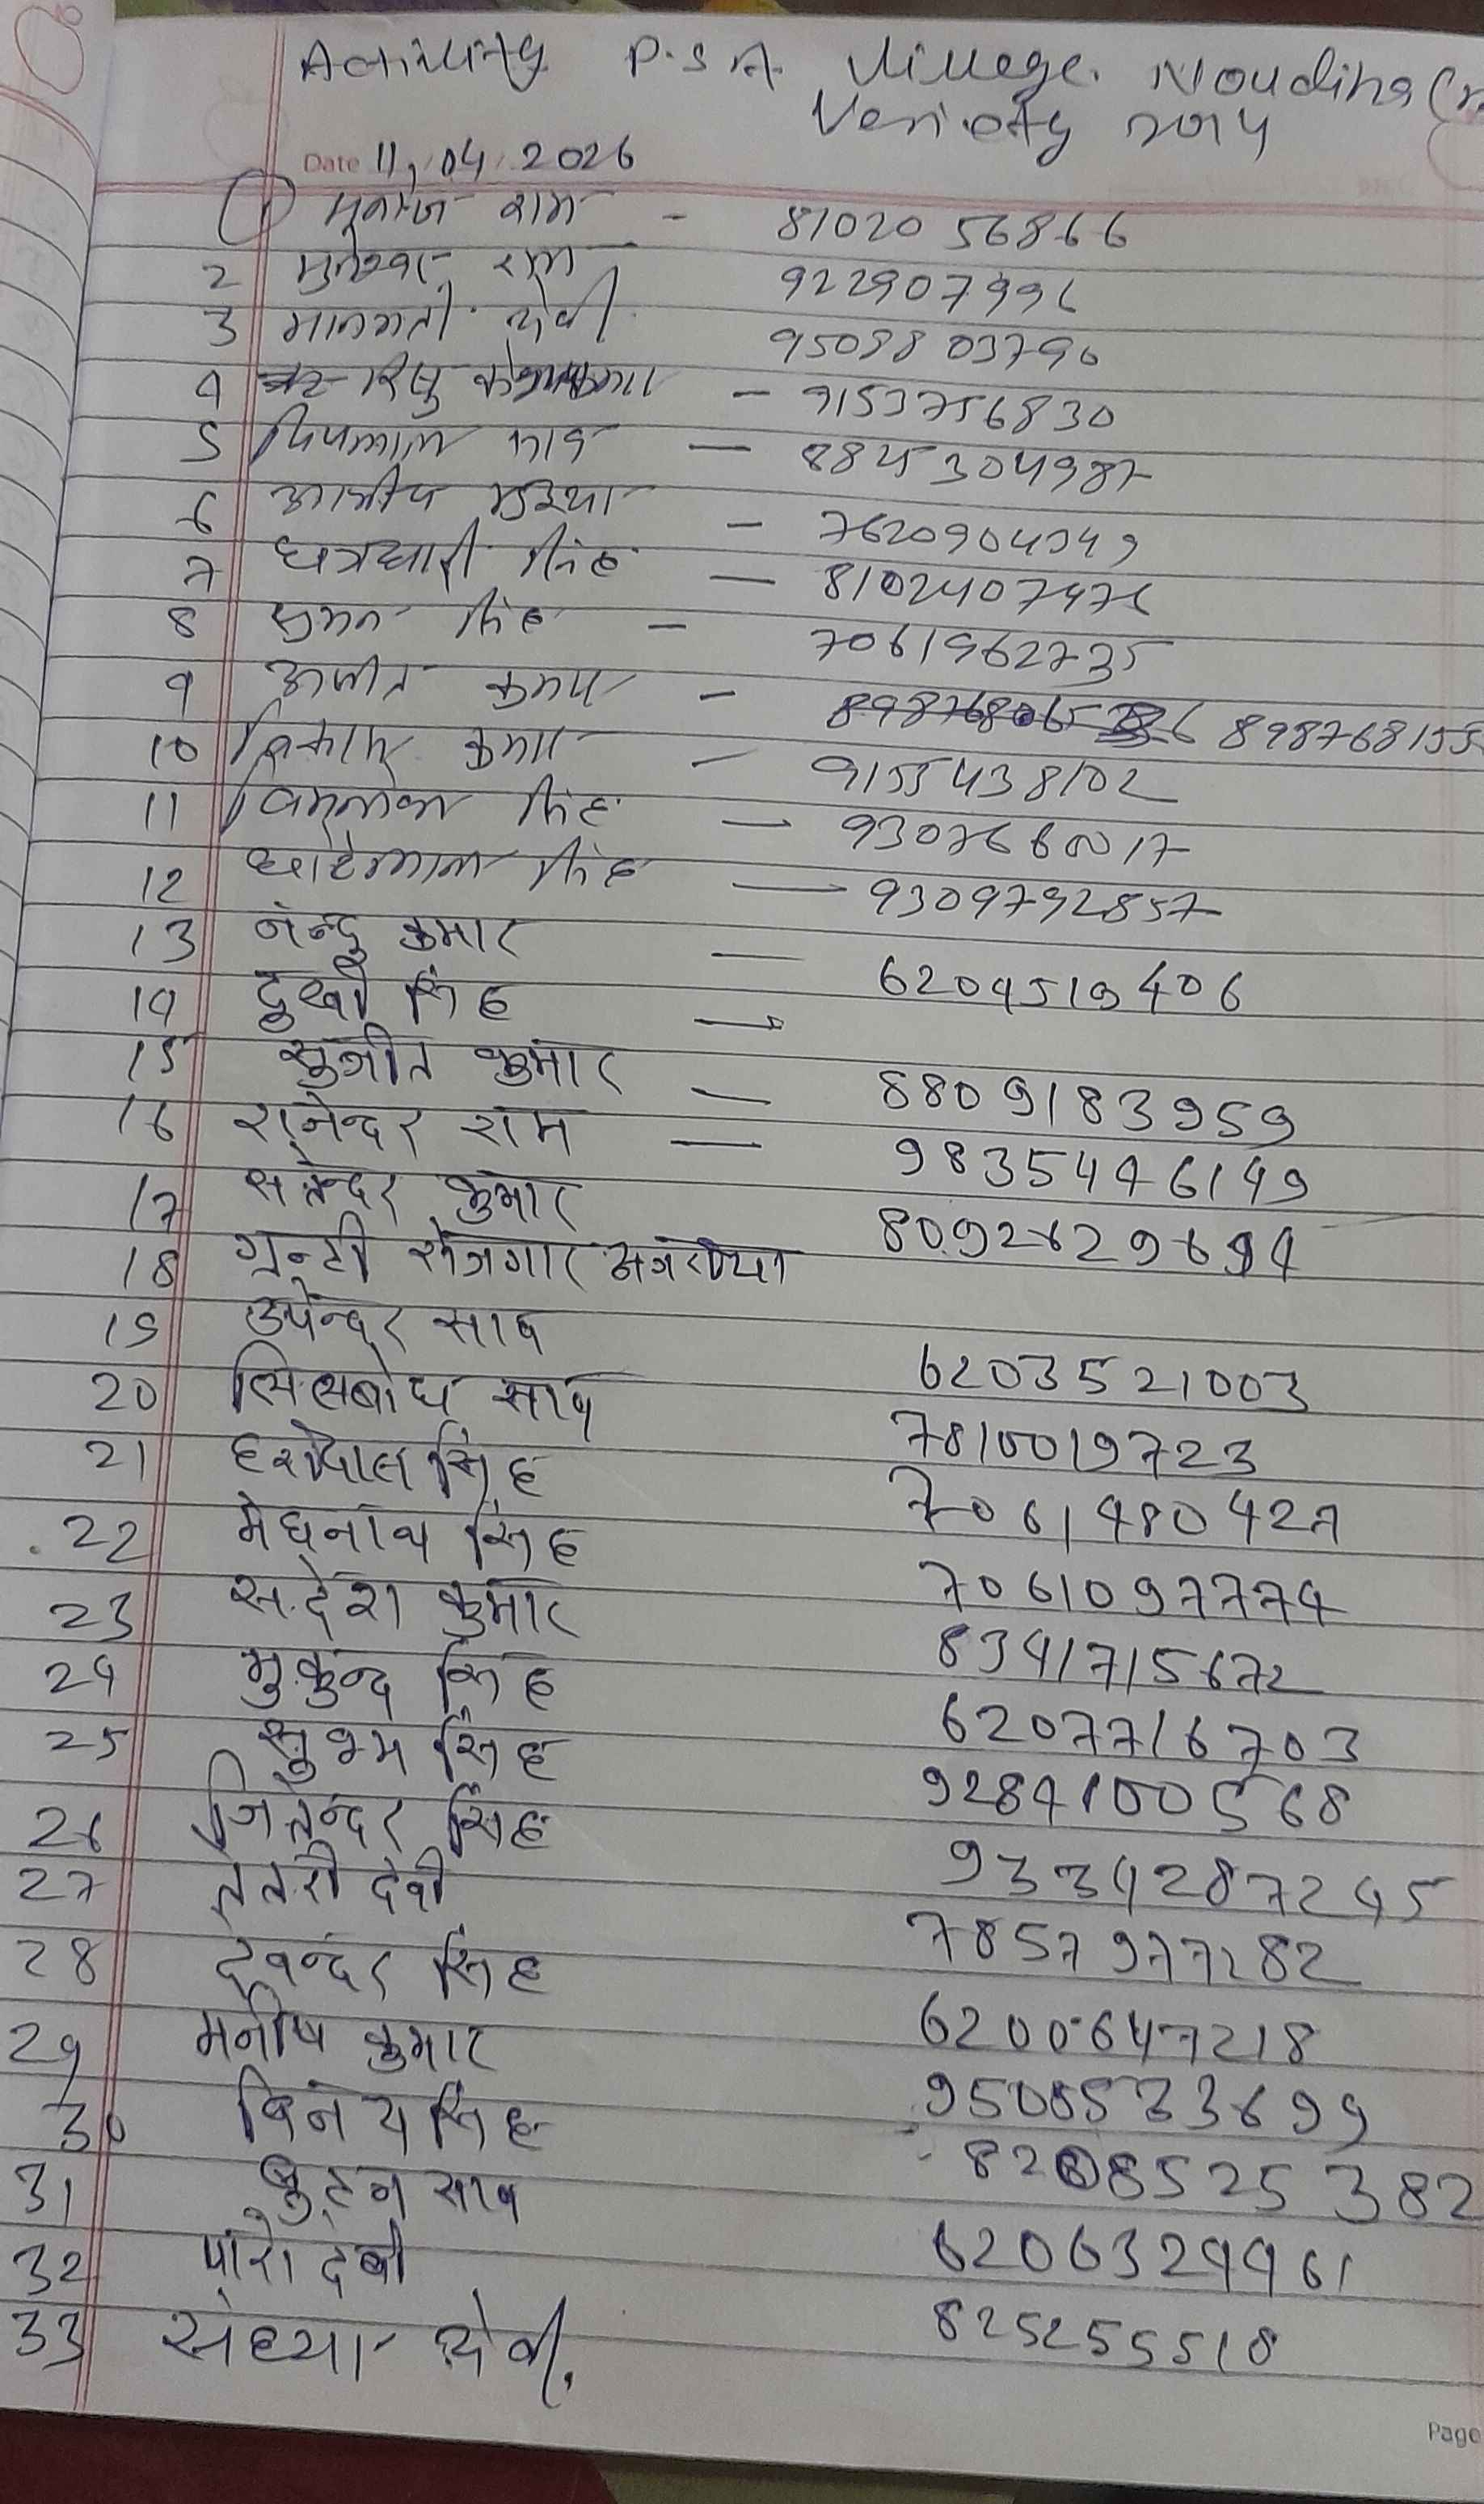 Activity P.S.A. Village. Noudiha
Veriety 2014
Date 11/04/2026
1 मनोज राम - 8102056866
2 मुनेश्वर राम 922907996
3 मानमती देवी 9508803790
4 रिषु - 9153756830
5 साव - 8845304987
6 - 7620904949
7 छत्रधारी सिंह - 8102407476
8 सुमन सिंह - 7061962735
9 अजीत कुमार - 89876815
10 विकास कुमार - 9155438102
11 सिंह - 9307660017
12 छोटेलाल सिंह - 9309792857
13 नन्दु कुमार - 6204519406
14 दुखी सिंह -
15 सुजीत कुमार - 8809183959
16 राजेन्दर राम - 9835446149
17 सतेन्दर कुमार 8092629694
18 रोजगार
19 उपेन्दर साव
20 साव 6203521003
21 हरीदयाल सिंह 7810019723
22 मेघनाथ सिंह 7061480427
23 संदेश कुमार 7061097774
24 मुकुन्द सिंह 8341715672
25 सुभम सिंह 6207716703
26 जितेन्दर सिंह 9284100568
27 तेतरी देवी 9334287245
28 देवेन्दर सिंह 7857977282
29 मनीष कुमार 6200647218
30 विनय सिंह 9500533699
31 साव 8208525382
32 पारो देवी 6206329961
33 संध्या देवी. 825255518
Page